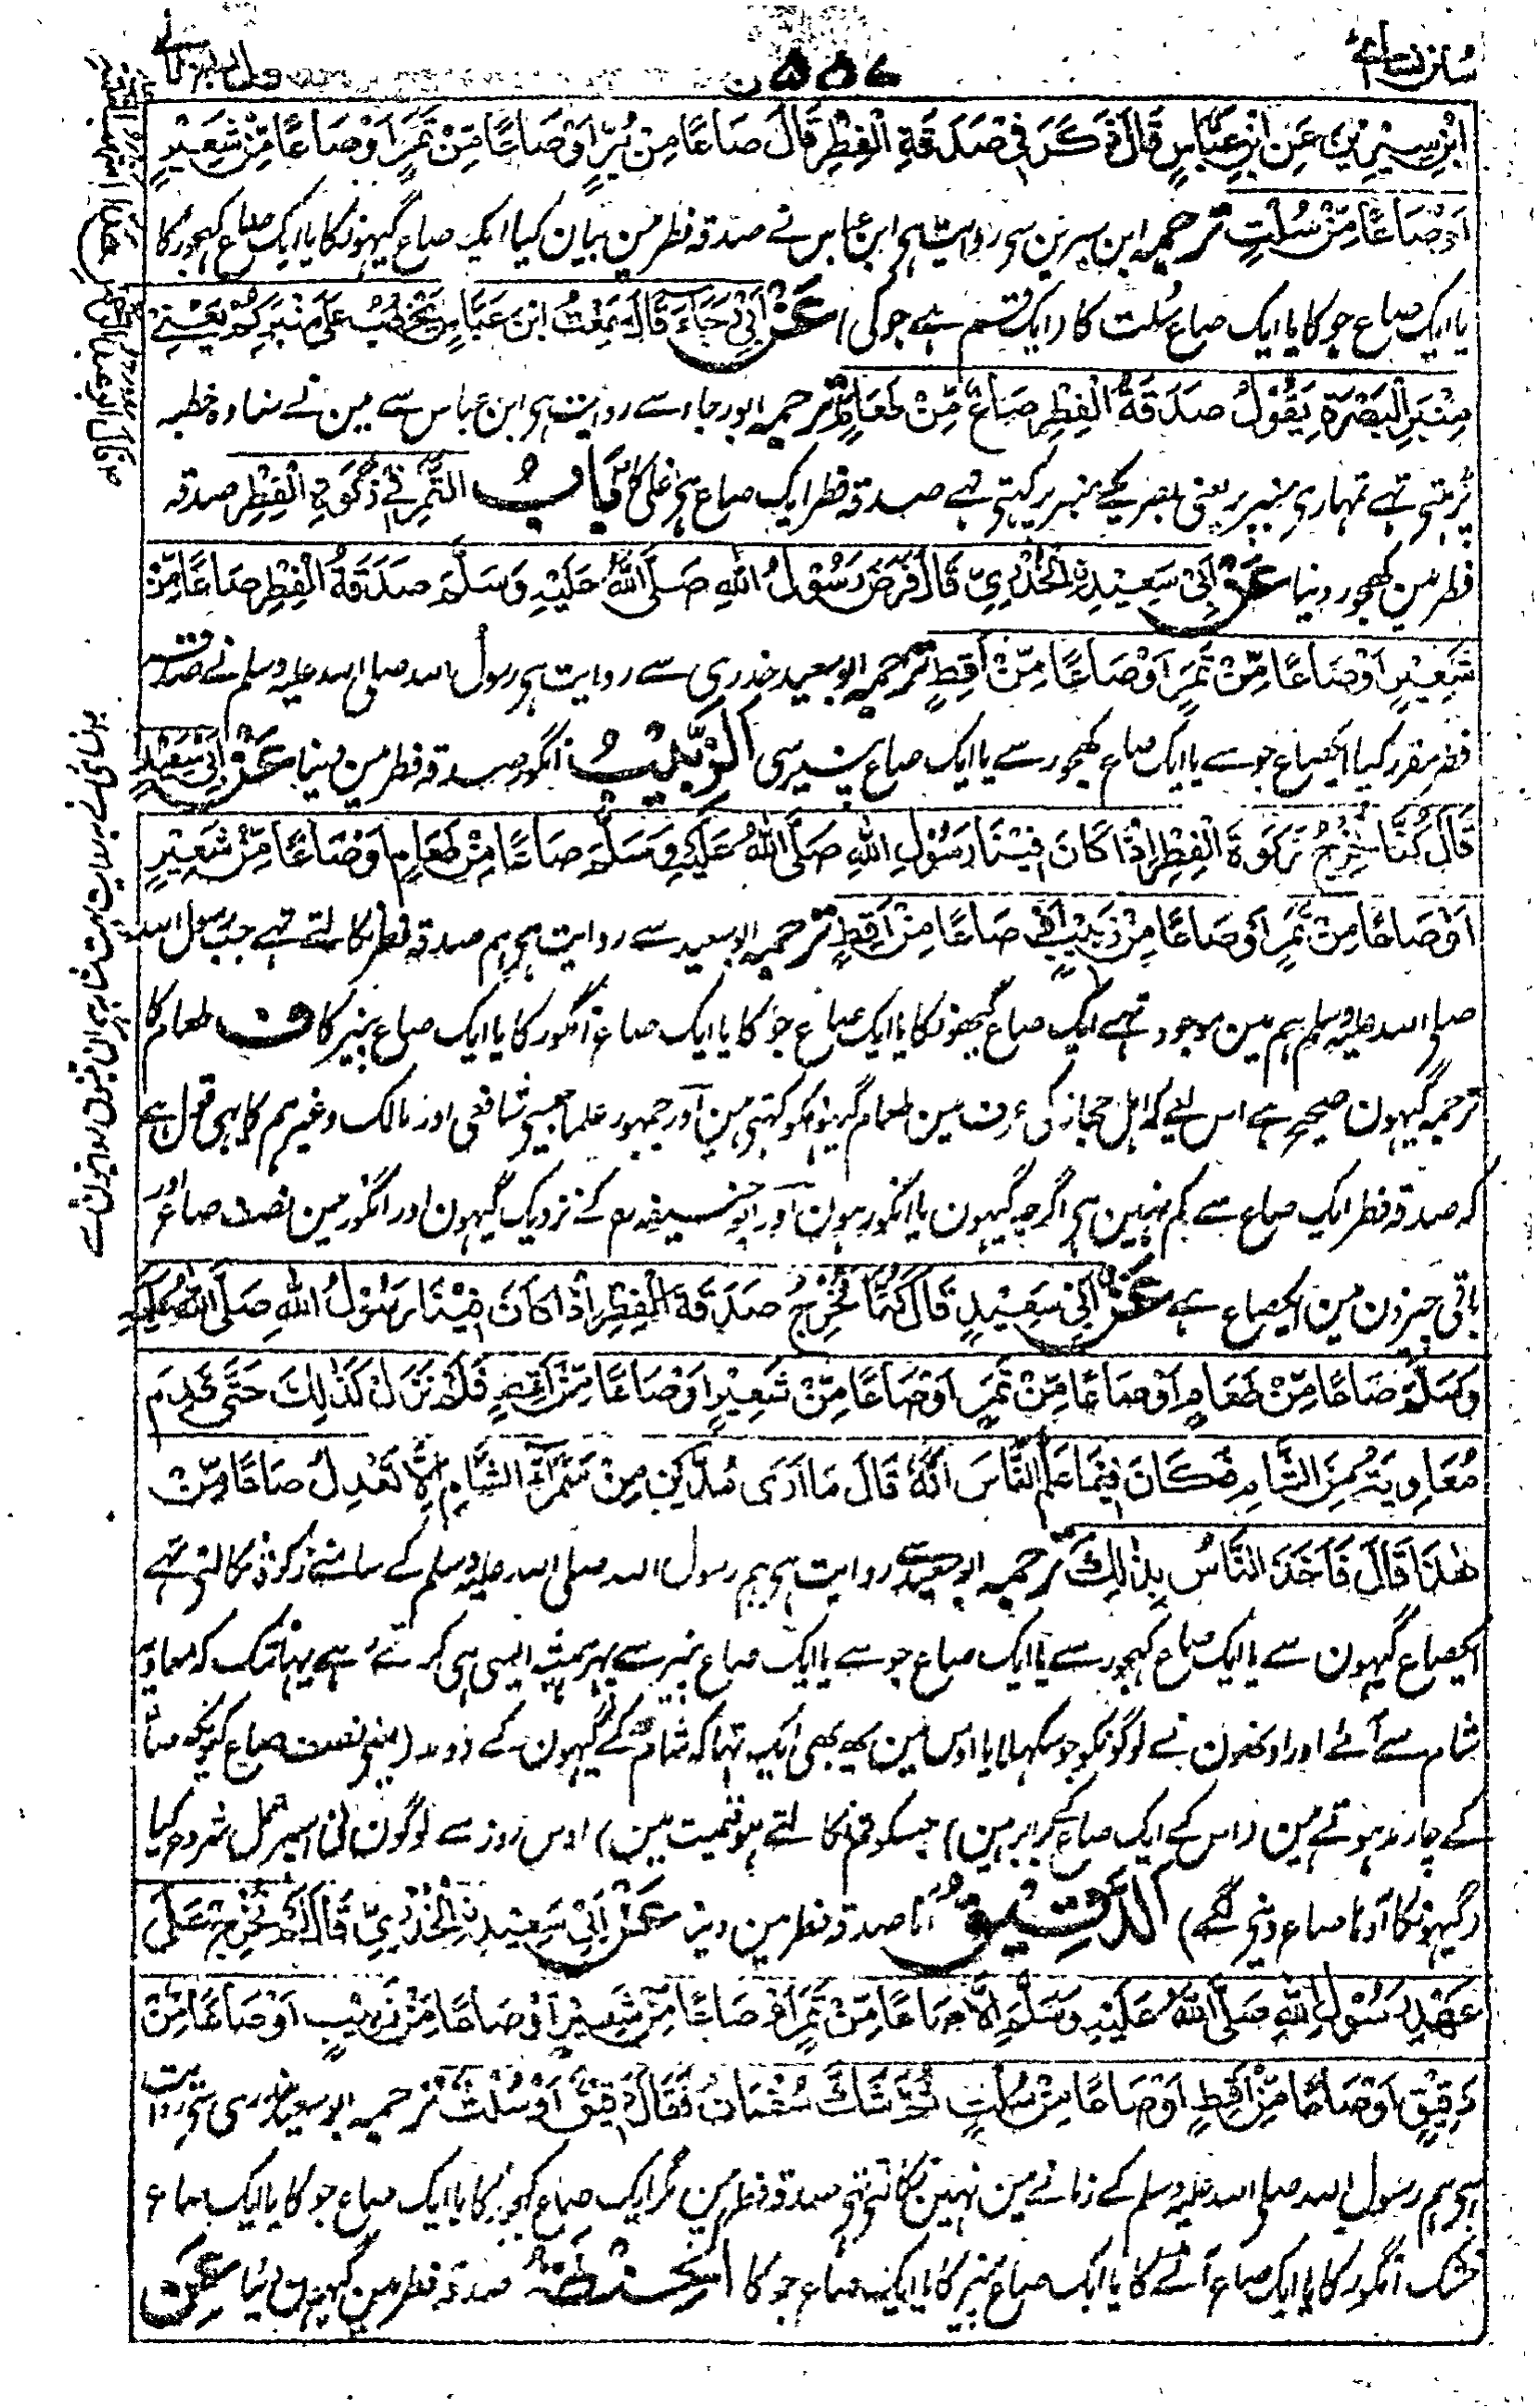 سنن نسائی
۵۵۷
جلد اول
ابْنِ سِيْرِيْنَ عَنِ ابْنِ عَبَّاسٍ قَالَ ذَكَرَ فِيْ صَدَقَةِ الْفِطْرِ قَالَ صَاعًا مِنْ بُرٍّ اَوْ صَاعًا مِّنْ تَمْرٍ اَوْ صَاعًا مِّنْ شَعِيْرٍ
اَوْ صَاعًا مِّنْ سُلْتٍ ترجمہ ابن سیرین سے روایت ہی ابن عباس نے صدقہ فطر مین بیان کیا ایک صاع گیہونکا یا ایک صاع کہجور کا
یا ایک صاع جو کا یا ایک صاع سُلت کا (ایک قسم ہے جو کی) عَنْ اَبِيْ رَجَاءَ قَالَ سَمِعْتُ ابْنَ عَبَّاسٍ يَخْطُبُ عَلٰى مِنْبَرِكُمْ يَعْنِيْ
مِنْبَرَ الْبَصْرَةِ يَقُوْلُ صَدَقَةُ الْفِطْرِ صَاعٌ مِّنْ طَعَامٍ ترجمہ ابو رجاء سے روایت ہی ابن عباس سے مین نے سنا وہ خطبہ
پڑہتی تہے تمہاری منبر پر یعنی بصرے کے منبر پر کہتی تہے صدقہ فطر ایک صاع ہی غلے کا بَابُ التَّمْرِ فِيْ زَكٰوةِ الْفِطْرِ صدقہ
فطر مین کھجور دینا عَنْ اَبِيْ سَعِيْدِنِ الْخُدْرِيِّ قَالَ فَرَضَ رَسُوْلُ اللهِ صَلَّى اللهُ عَلَيْهِ وَسَلَّمَ صَدَقَةَ الْفِطْرِ صَاعًا مِّنْ
شَعِيْرٍ اَوْ صَاعًا مِّنْ تَمْرٍ اَوْ صَاعًا مِّنْ اَقِطٍ ترجمہ ابو سعید خدری سے روایت ہی رسول اللہ صلی اللہ علیہ وسلم نے صدقہ
فطر مقرر کیا ایکصاع جو سے یا ایک صاع کھجور سے یا ایک صاع پنیر سی اَلزَّبِيْبُ انگور صدقہ فطر مین دینا عَنْ اَبِيْ سَعِيْدٍ
قَالَ كُنَّا نُخْرِجُ زَكٰوةَ الْفِطْرِ اِذَا كَانَ فِيْنَا رَسُوْلُ اللهِ صَلَّى اللهُ عَلَيْهِ وَسَلَّمَ صَاعًا مِّنْ طَعَامٍ اَوْ صَاعًا مِّنْ شَعِيْرٍ
اَوْ صَاعًا مِنْ تَمْرٍ اَوْ صَاعًا مِنْ زَبِيْبٍ اَوْ صَاعًا مِنْ اَقِطٍ ترجمہ ابو سعید سے روایت ہی ہم صدقہ فطر نکالتے تہے جب رسول اللہ
صلی اللہ علیہ وسلم ہم مین موجود تہے ایک صاع گیہونکا یا ایک صاع جو کا یا ایک صاع انگور کا یا ایک صاع پنیر کا ف طعام کا
ترجمہ گیہون صحیح ہے اس لیے کہ اہل حجاز کی عرف مین طعام گیہونکو کہتی ہین اور جمہور علما جیسے شافعی اور مالک وغیرہم کا یہی قول ہے
کہ صدقہ فطر ایک صاع سے کم نہین ہی اگرچہ گیہون یا انگور ہون اور ابو حنیفہ کے نزدیک گیہون اور انگور مین نصف صاع اور
باقی چیزون مین ایکصاع ہے عَنْ اَبِيْ سَعِيْدٍ قَالَ كُنَّا نُخْرِجُ صَدَقَةَ الْفِطْرِ اِذَا كَانَ فِيْنَا رَسُوْلُ اللهِ صَلَّى اللهُ عَلَيْهِ
وَسَلَّمَ صَاعًا مِّنْ طَعَامٍ اَوْ صَاعًا مِّنْ تَمْرٍ اَوْ صَاعًا مِنْ شَعِيْرٍ اَوْ صَاعًا مِّنْ اَقِطٍ فَلَمْ نَزَلْ كَذٰلِكَ حَتّٰى قَدِمَ
مُعَاوِيَةُ مِنَ الشَّامِ فَكَانَ فِيْمَا عَلَّمَ النَّاسَ اَنَّهٗ قَالَ مَا اَرٰى مُدَّيْنِ مِنْ سَمْرَاءِ الشَّامِ اِلَّا تَعْدِلُ صَاعًا مِّنْ
هٰذَا قَالَ فَاَخَذَ النَّاسُ بِذٰلِكَ ترجمہ ابو سعید سے روایت ہی ہم رسول اللہ صلی اللہ علیہ وسلم کے سامنے زکوٰۃ نکالتی تہے
ایکصاع گیہون سے یا ایک صاع کہجور سے یا ایک صاع جو سے یا ایک صاع پنیر سے پہر ہمیشہ ایسی ہی کرتے رہے یہانتک کہ معاویہ
شام سے آئے اور اونھون نے لوگونکو جو سکہلایا اوس مین یہ بھی ایک تہا کہ شام کے گیہون کے دو مد (یعنی نصف صاع کیونکہ صاع
کے چار مد ہوتے ہین) اس کے ایک صاع کے برابر ہین) جسکو تم نکالتے ہو قیمت مین) اوس روز سے لوگون نی اسپر عمل شروع کیا
(گیہونکا آدہا صاع دینے لگے) اَلدَّقِيْقُ آٹا صدقہ فطر مین دینا عَنْ اَبِيْ سَعِيْدِنِ الْخُدْرِيِّ قَالَ لَمْ نُخْرِجْ عَلٰى
عَهْدِ رَسُوْلِ اللهِ صَلَّى اللهُ عَلَيْهِ وَسَلَّمَ اِلَّا صَاعًا مِّنْ تَمْرٍ اَوْ صَاعًا مِّنْ شَعِيْرٍ اَوْ صَاعًا مِّنْ زَبِيْبٍ اَوْ صَاعًا مِّنْ
دَقِيْقٍ اَوْ صَاعًا مِّنْ اَقِطٍ اَوْ صَاعًا مِّنْ سُلْتٍ ثُمَّ شَكَّ سُفْيَانُ فَقَالَ دَقِيْقٌ اَوْ سُلْتٌ ترجمہ ابو سعید خدری سی روایت
ہی ہم رسول اللہ صلی اللہ علیہ وسلم کے زمانے مین نہین نکالتی تہی صدقہ فطر مین مگر ایک صاع کہجور کا یا ایک صاع جو کا یا ایک صاع
خشک انگور کا یا ایک صاع آٹے کا یا ایک صاع پنیر کا یا ایک صاع جو کا اَلْحِنْطَةُ صدقہ فطر مین گیہون دینا عَنِ